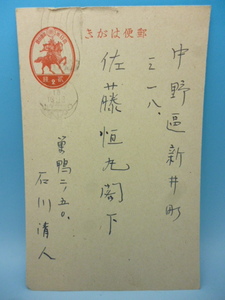 郵便はがき
中野區新井町
三一八、
佐藤恒丸閣下
巣鴨二ノ五〇、
石川清人